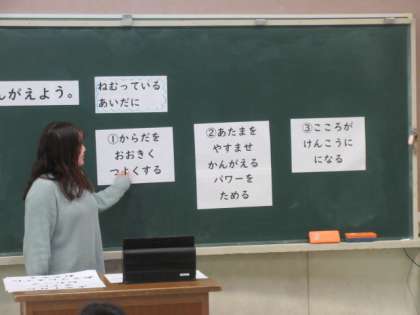 んがえよう。
ねむっている
あいだに
①からだを
おおきく
つよくする
②あたまを
やすませ
かんがえる
パワーを
ためる
③こころが
けんこうに
になる